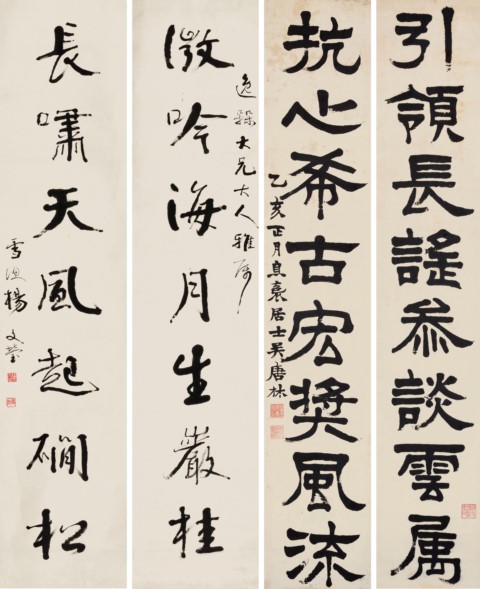 引領長謠叅談雲属
抗心希古宏奬風流
乙亥正月息裏居士吴唐林
逸大兄大人雅屬
微吟海月生巖桂
長嘯天風起磵松
雪漁楊文瑩